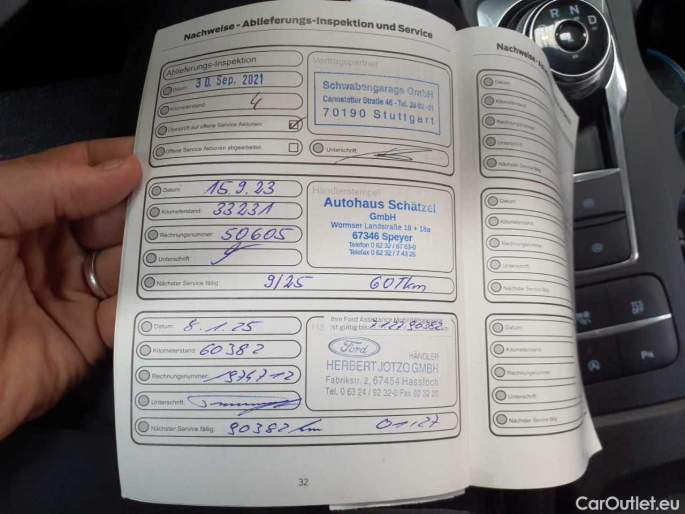 Nachweise - Ablieferungs-Inspektion und Service
Ablieferungs-Inspektion
Datum: 30. Sep. 2021
Kilometerstand: 4
Überprüft auf offene Service Aktionen:
Offene Service Aktionen abgearbeitet:
Vertragspartner
Schwabengarage GmbH
Cannstatter Straße 46 - Tel.
70190 Stuttgart
Unterschrift:
Datum: 15.9.23
Kilometerstand: 33231
Rechnungsnummer: 50605
Unterschrift:
Nächster Service fällig: 9/25 60Tkm
Händlerstempel
Autohaus Schätzel
GmbH
Wormser Landstraße 16 + 18a
67346 Speyer
Telefon 0 62 32 / 67 63-0
Telefax 0 62 32 / 7 43 25
Datum: 8.1.25
Kilometerstand: 60382
Rechnungsnummer:
Unterschrift:
Nächster Service fällig: 90382 km 01/27
Ihre Ford Assistance
ist gültig bis:
Ford
HÄNDLER
HERBERT JOTZO GMBH
Fabrikstr. 2, 67454 Hassloch
Tel. 0 63 24 / 92 32-0 Fax 92 32 20
32
Nachweise - Ab
Datum:
Kilometerstand:
Rechnungsnummer:
Unterschrift:
Nächster Service fällig:
Datum:
Kilometerstand:
Rechnungsnummer:
Unterschrift:
Nächster Service fällig:
Datum:
Kilometerstand:
Rechnungsnummer:
Unterschrift:
Nächster Service fällig:
R N D
P
CarOutlet.eu